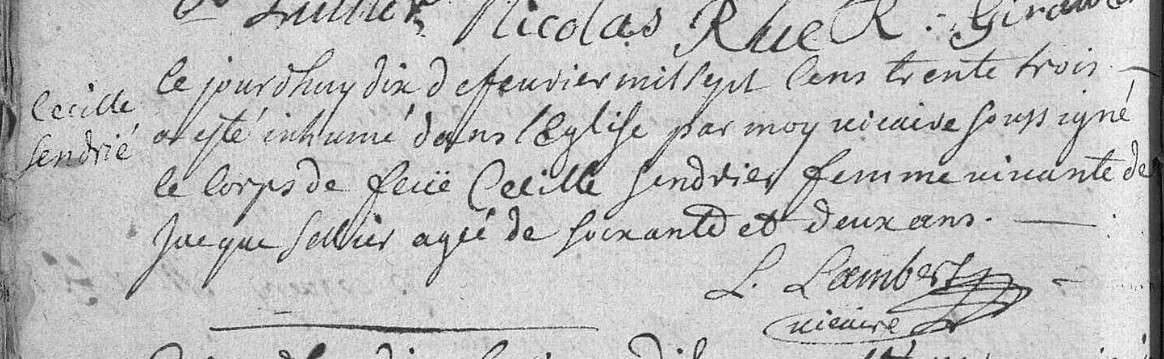 Nicolas Rhue R. Girau
Cecille
Sendrié
Ce jourdhuy dix de feuvrier mil sept cens trente trois
a esté inhumé dans l'Eglise par moy vicaire soussigné
le corps de feüe Cecille Sendrier femme vivante de
Jacque Sellier agée de soixante et deux ans.
L. Lambert
vicaire